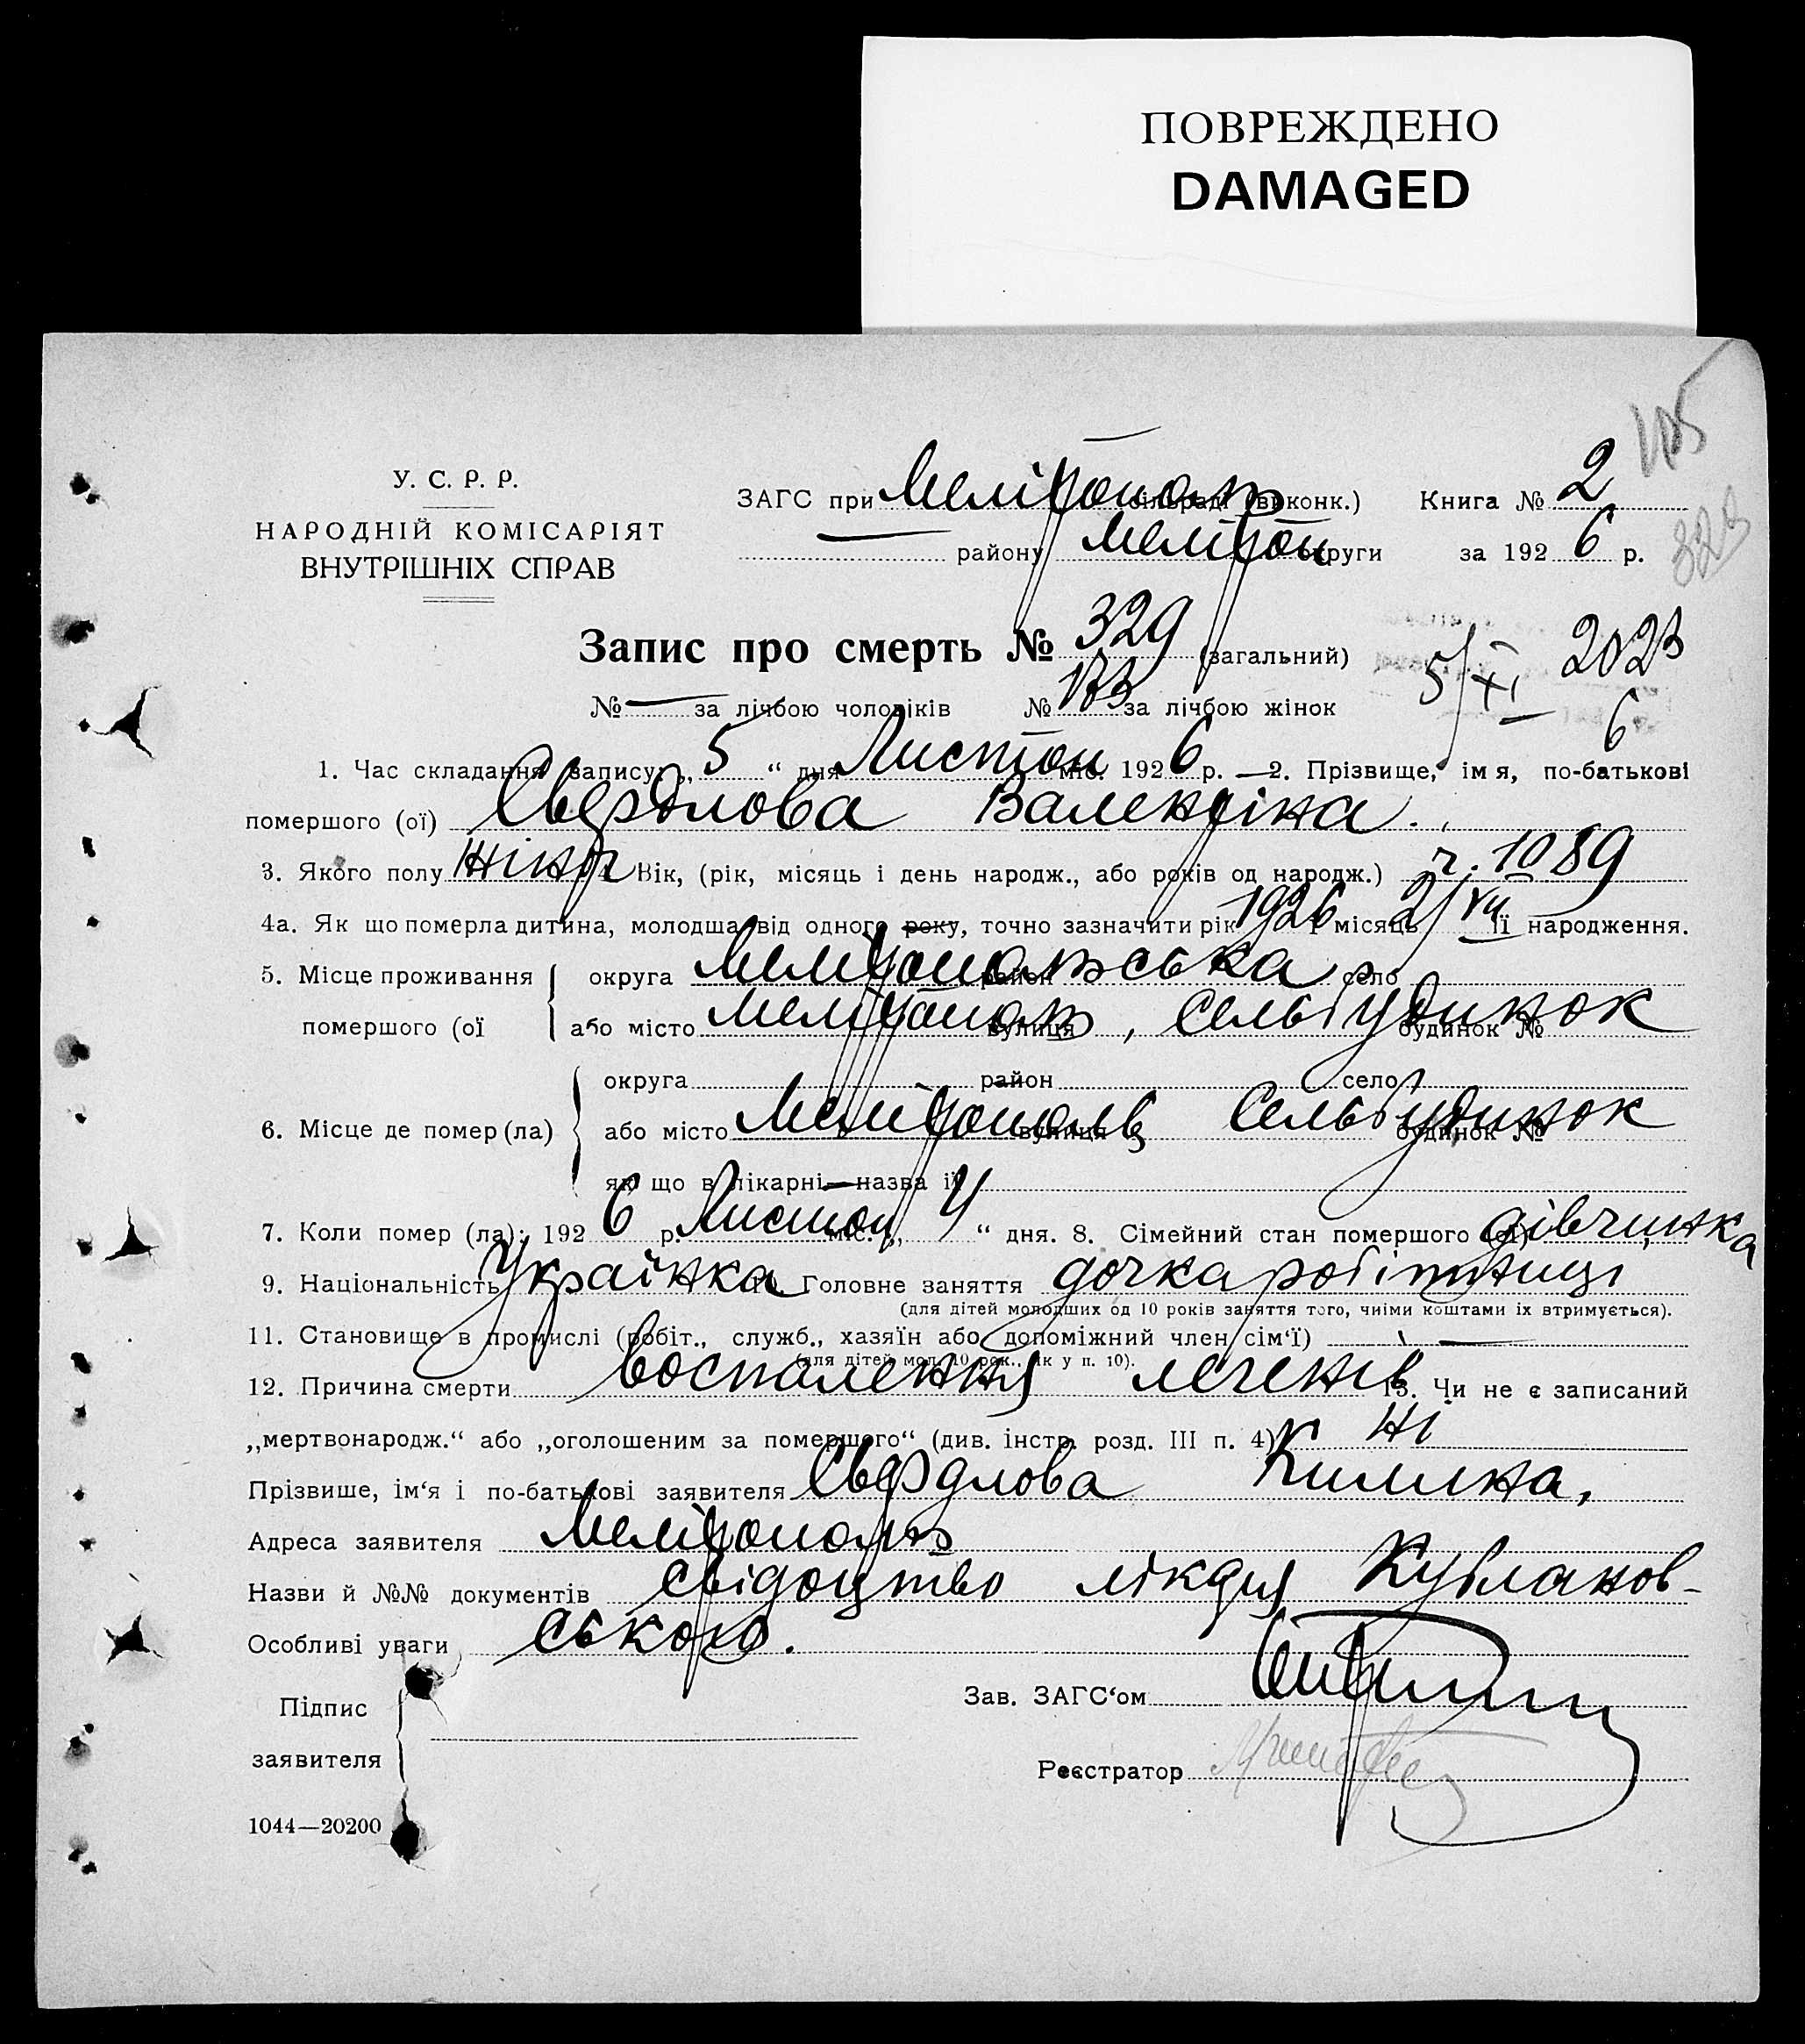 ПОВРЕЖДЕНО
DAMAGED
105
329
У. С. Р. Р.
НАРОДНІЙ КОМІСАРІЯТ
ВНУТРІШНІХ СПРАВ
ЗАГС при Мелітополь сільраді (виконк.) Книга № 2
— району Мелітоп округи за 192 6 р.
Запис про смерть № 329 (загальний)
5/XI 2023
6
№ — за лічбою чоловіків № 133 за лічбою жінок
1. Час складання запису: „ 5 “ дня Листоп міс. 192 6 р. — 2. Прізвище, імя, по-батькові
помершого (ої) Свердлова Валентіна.
3. Якого полу Жіноч 4. Вік, (рік, місяць і день народж., або років од народж.)
4а. Як що померла дитина, молодша від одного року, точно зазначити рік 1926 і місяць 2/VII її народження.
5. Місце проживання помершого (ої { округа Мелітопольська район село
або місто Мелітополь, вулиця Сельбудинок будинок №
6. Місце де помер (ла) { округа район село
або місто Мелітополь вулиця Сельбудинок будинок №
як що в лікарні—назва її
7. Коли помер (ла): 192 6 р. Листоп міс. „ 4 “ дня. 8. Сімейний стан помершого (ої) дівчинка
9. Національність Українка 10. Головне заняття дочка робітниці
(для дітей молодших од 10 років заняття того, чиіми коштами іх втримується).
11. Становище в промислі (робіт., служб., хазяїн або допоміжний член сім‘ї) —
(для дітей мол. 10 рок., як у п. 10).
12. Причина смерти воспалення легенів 13. Чи не є записаний
„мертвонародж.“ або „оголошеним за помершого“ (див. інстр. розд. III п. 4) Ні
Прізвише, ім‘я і по-батькові заявителя Свердлова Килина,
Адреса заявителя Мелітополь
Назви й №№ документів свідоцтво лікаря Кублановською.
Особливі уваги
Підпис заявителя {
Зав. ЗАГС‘ом
Реєстратор
1044—20200